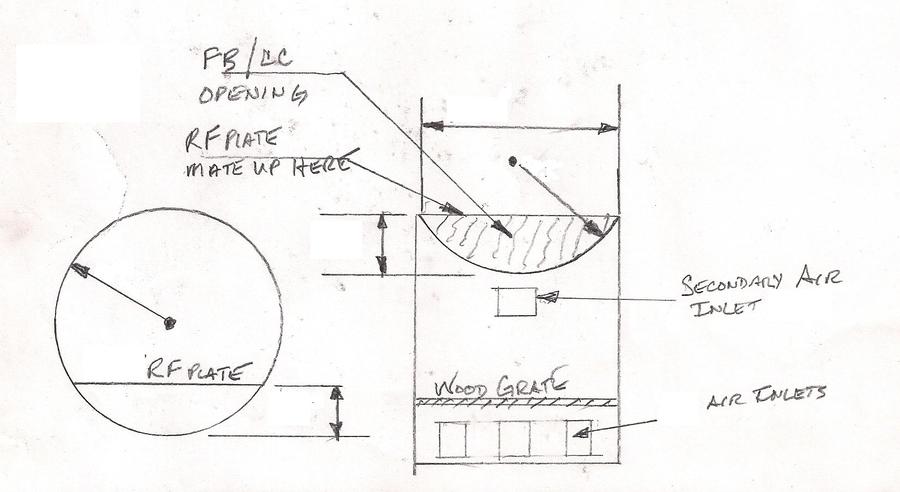 FB/CC
OPENING
RF PLATE
MATE UP HERE
RF PLATE
SECONDARY AIR
INLET
WOOD GRATE
AIR INLETS